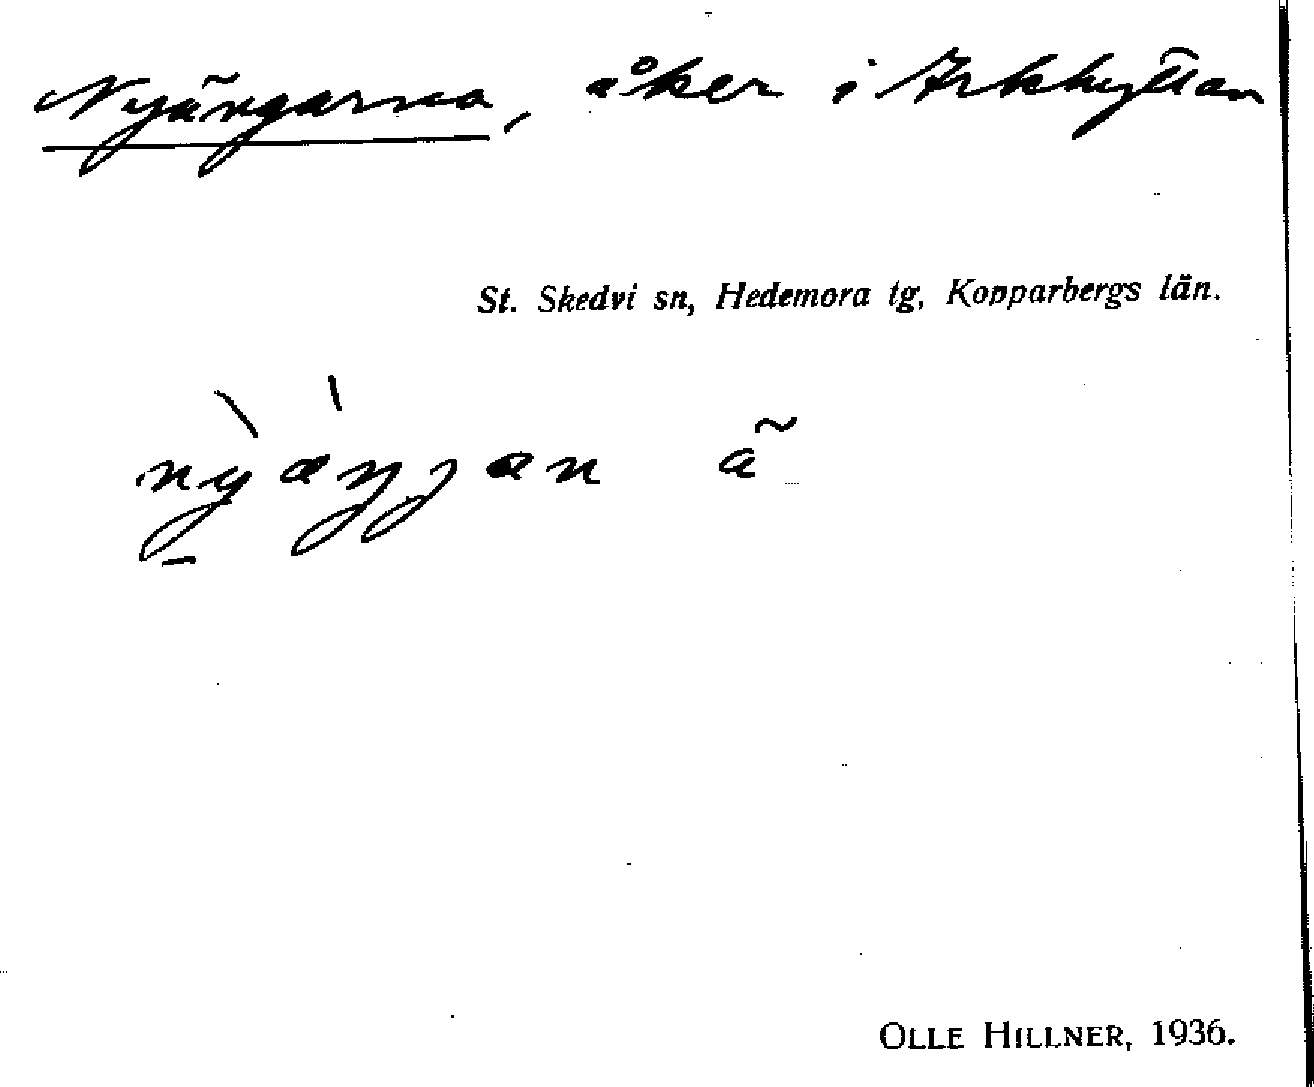 Nyängarna, åker i Arkhyttan
St. Skedvi sn, Hedemora tg, Kopparbergs län.
nỳ̠æŋ̍ŋan ã
OLLE HILLNER, 1936.